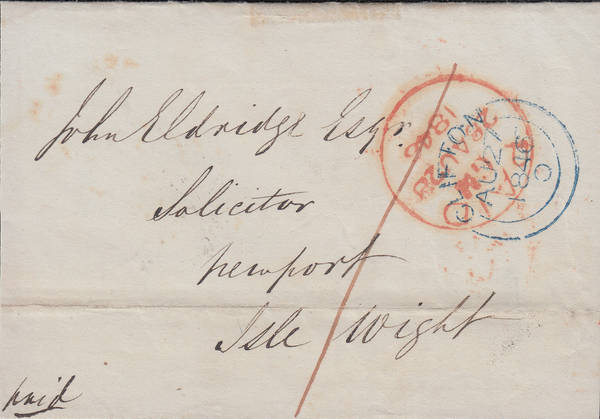 John Eldridge Esqr.
Solicitor
Newport
Isle Wight
paid
CLIFTON
AU 27
1846
O
28 AU 28
1846